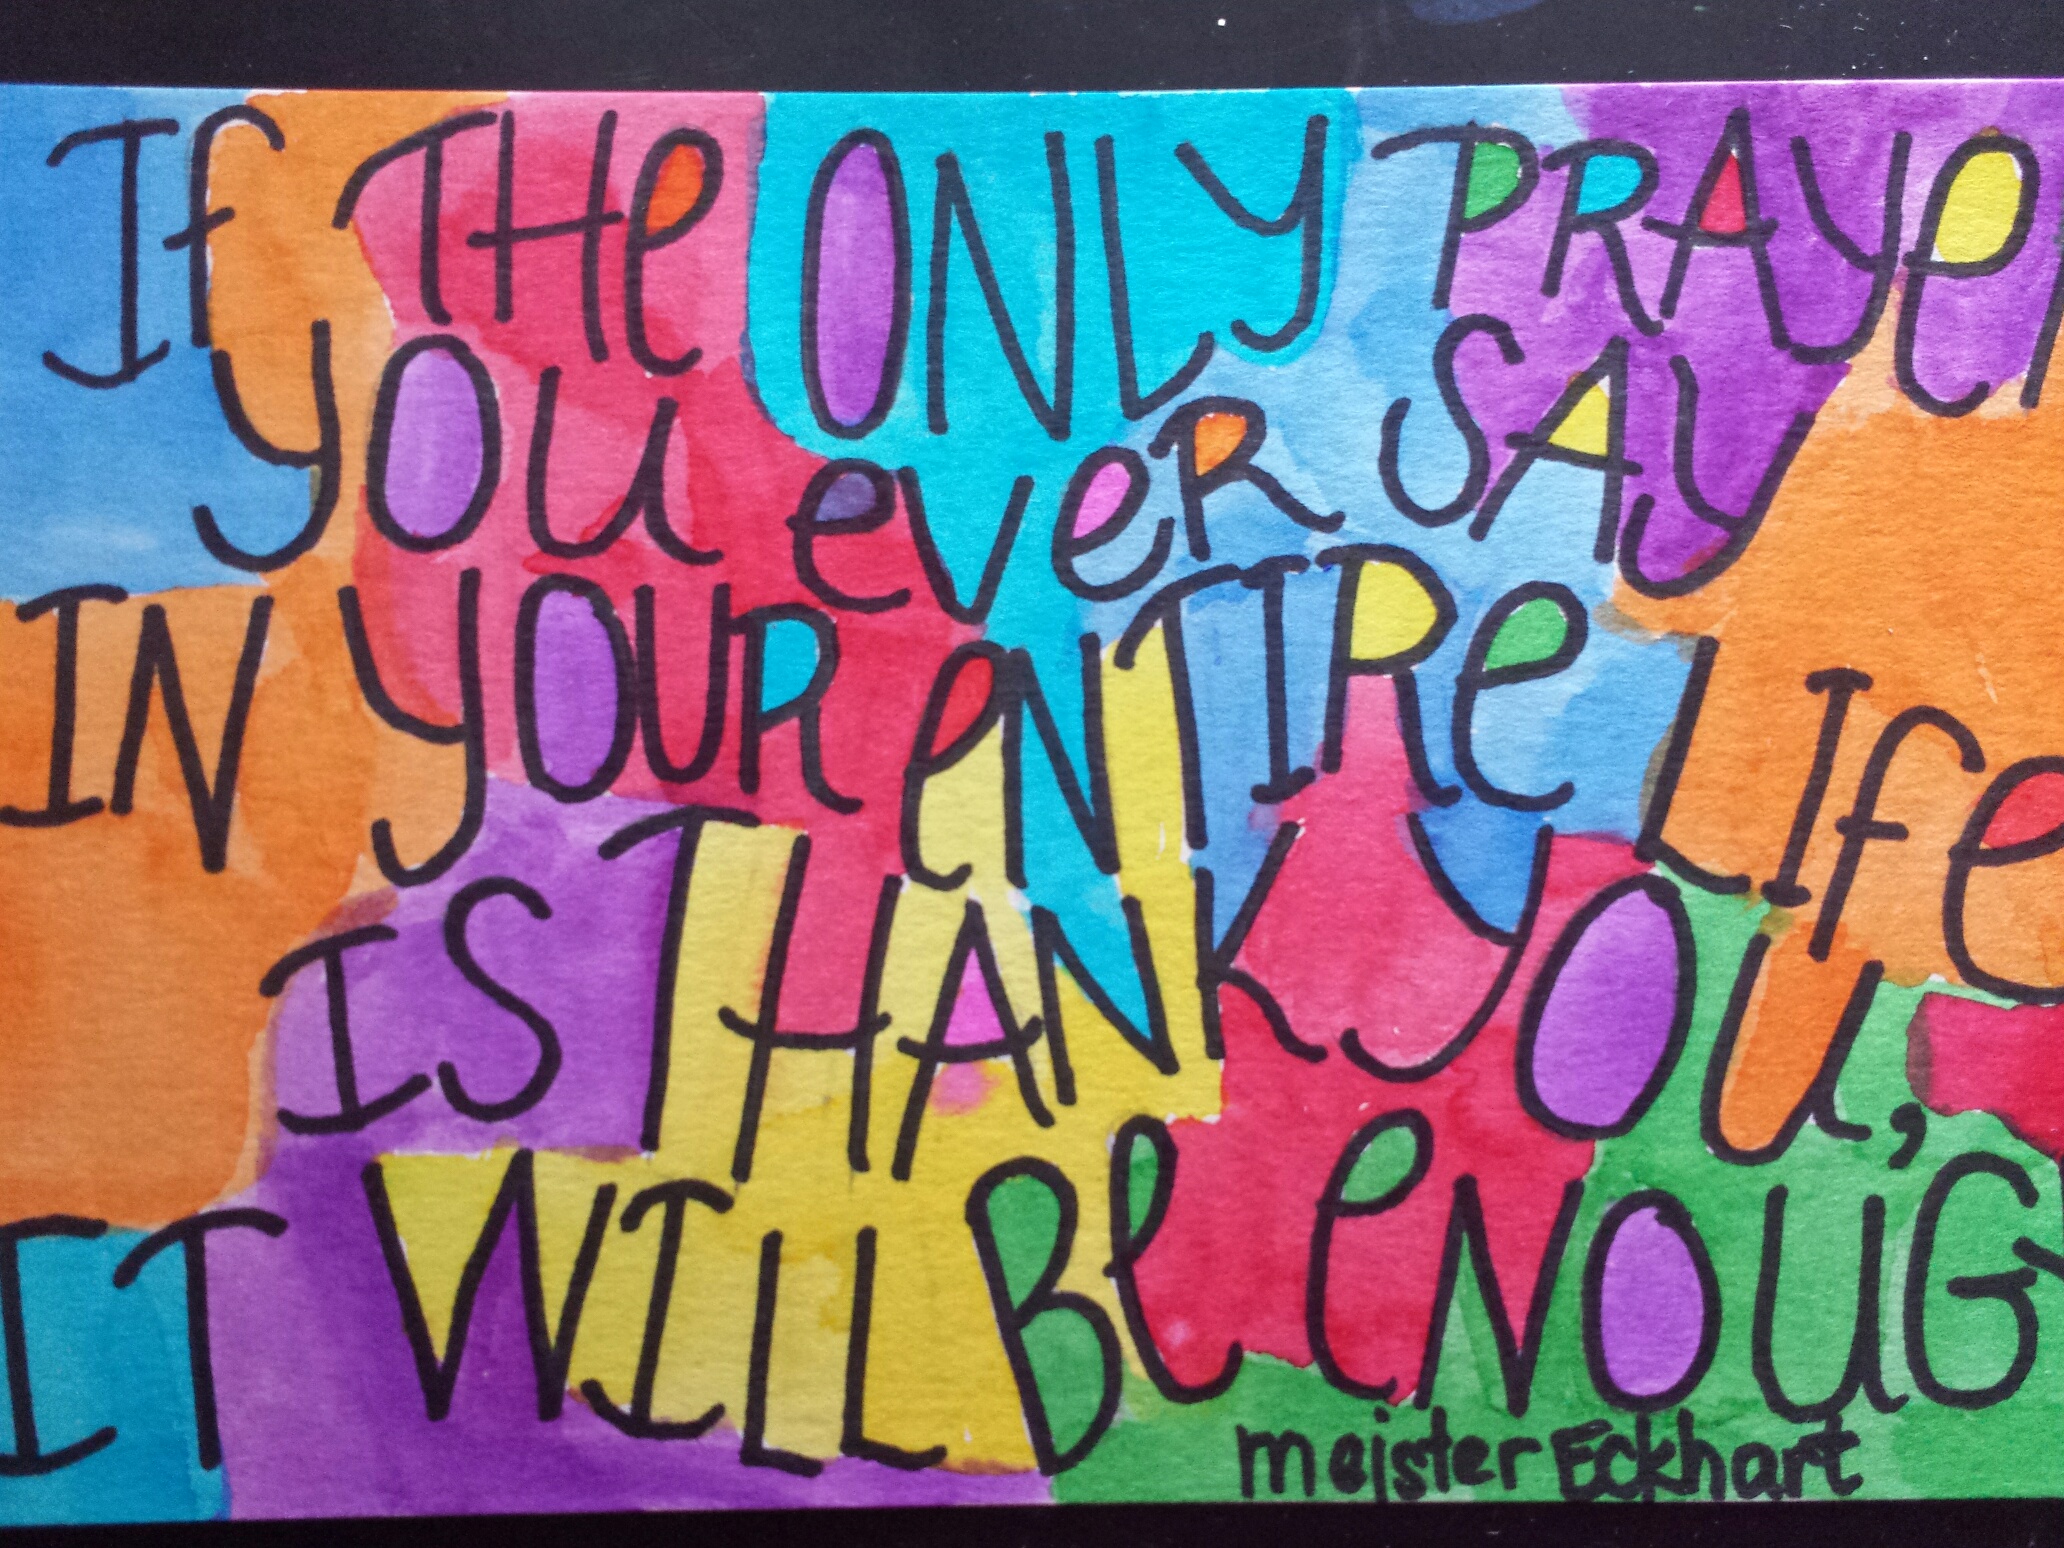 If THe ONLY PRAYer
YOU eVeR SAY
IN YOUR eNTIRe LIfe
IS THANK YOU,
IT WILL Be eNOUG
meister Eckhart